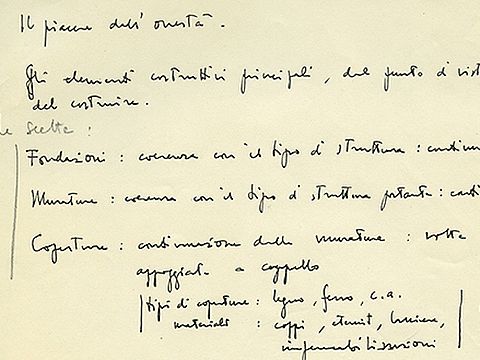 Il piacere dell'onestà.
Gli elementi costruttivi principali, dal punto di vist
del costruire.
e scelte:
Fondazioni: coerenza con il tipo di struttura: continu
Murature: coerenza con il tipo di struttura portante: conti
Coperture: continuazione delle murature: volta
appoggiata a cappello
tipi di coperture: legno, ferro, c.a.
materiali: coppi, eternit, lamiere,
impermeabilizzazioni